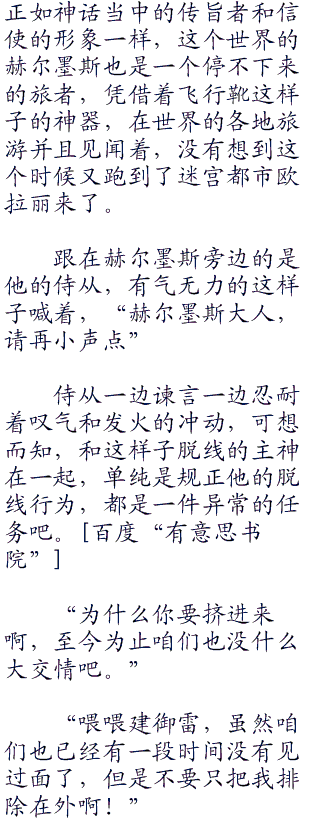 正如神话当中的传旨者和信
使的形象一样，这个世界的
赫尔墨斯也是一个停不下来
的旅者，凭借着飞行靴这样
子的神器，在世界的各地旅
游并且见闻着，没有想到这
个时候又跑到了迷宫都市欧
拉丽来了。
跟在赫尔墨斯旁边的是
他的侍从，有气无力的这样
子喊着，“赫尔墨斯大人，
请再小声点”
侍从一边谏言一边忍耐
着叹气和发火的冲动，可想
而知，和这样子脱线的主神
在一起，单纯是规正他的脱
线行为，都是一件异常的任
务吧。[百度“有意思书
院”]
“为什么你要挤进来
啊，至今为止咱们也没什么
大交情吧。”
“喂喂建御雷，虽然咱
们也已经有一段时间没有见
过面了，但是不要只把我排
除在外啊！”